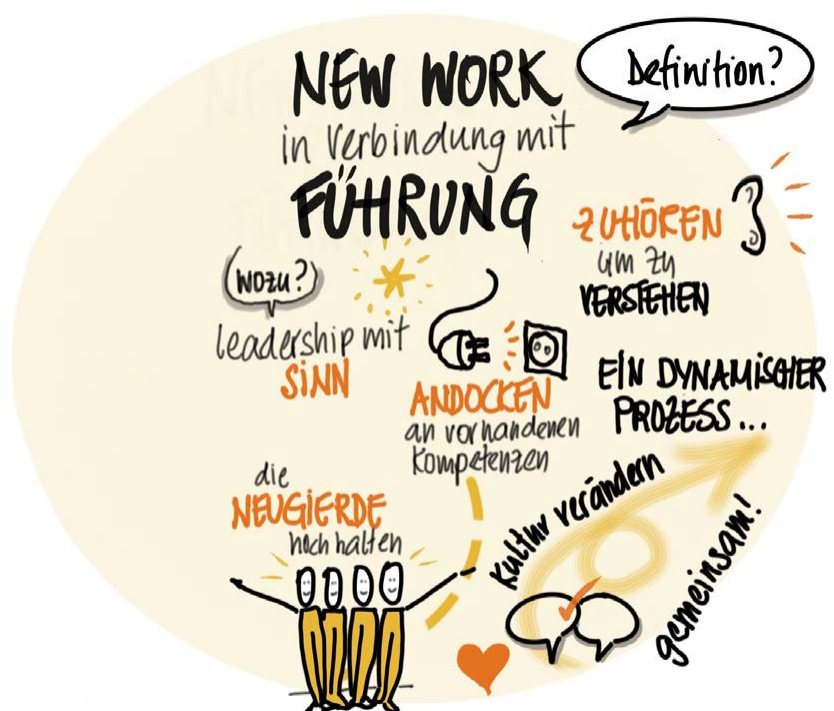 NEW WORK
in Verbindung mit
FÜHRUNG
Definition?
ZUHÖREN
um zu
VERSTEHEN
(wozu?)
leadership mit
SINN
ANDOCKEN
an vorhandenen
Kompetenzen
EIN DYNAMISCHER
PROZESS...
die
NEUGIERDE
hoch halten
Kultur verändern
gemeinsam!